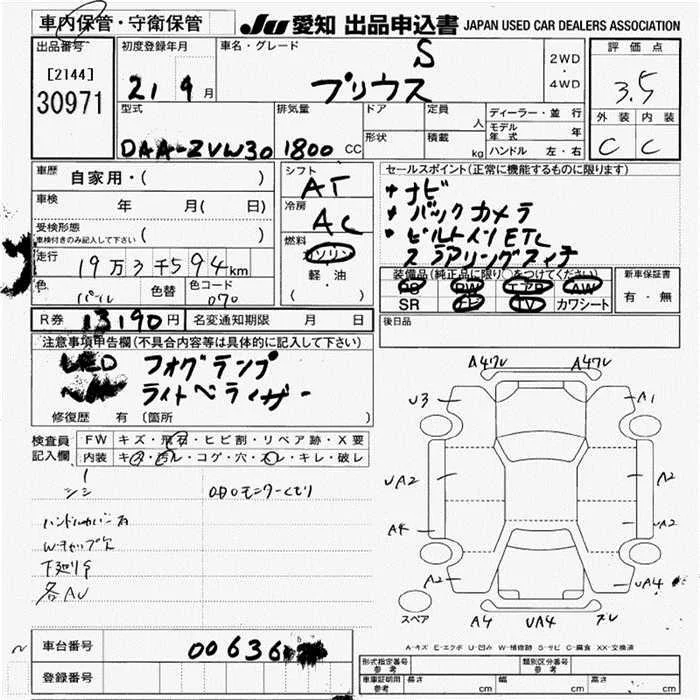 車内保管・守衛保管
JU 愛知 出品申込書 JAPAN USED CAR DEALERS ASSOCIATION
出品番号
[2144]
30971
初度登録年月
21 9 月
車名・グレード
S
プリウス
2WD
・
4WD
評価点
3.5
外装 内装
C C
型式
DAA-ZVW30
排気量
1800 CC
ドア
形状
定員
人
積載
kg
ディーラー・並行
モデル年式 年
ハンドル 左・右
車歴
自家用・( )
車検
年 月( 日)
受検形態
車検付きのみ記入して下さい
( )
走行
19万3千594km
色
パール
色替
色コード
070
シフト
AT
冷房
AC
燃料
ガソリン
軽・油
( )
セールスポイント(正常に機能するものに限ります)
ナビ
バックカメラ
ビルトインETC
ステアリングスイッチ
装備品(純正品に限り○をつけてください)
PS PW エアB AW
SR ナビ TV カワシート
新車保証書
有・無
R券 13190円
名変通知期限 月 日
後日品
注意事項申告欄(不具合内容等は具体的に記入して下さい)
LED フォグランプ
ライトベイザー
修復歴 有 (箇所 )
検査員記入欄
FW キズ・飛石・ヒビ割・リペア跡・X要
内装 キズ・汚れ・コゲ・穴・スレ・キレ・破レ
ハンドルカバー有
Wキャップ欠
下廻りサ
各AU
A4 A4
U3
A1
UA2
A2
A2
A2
UA4
スペア
A4 UA4
A-キズ E-エクボ U-凹み W-補修跡 S-サビ C-腐食 XX-交換済
車台番号
00636
登録番号
形式指定番号 参考
類別区分番号 参考
車庫証明用 参考
長さ cm 幅 cm 高さ cm